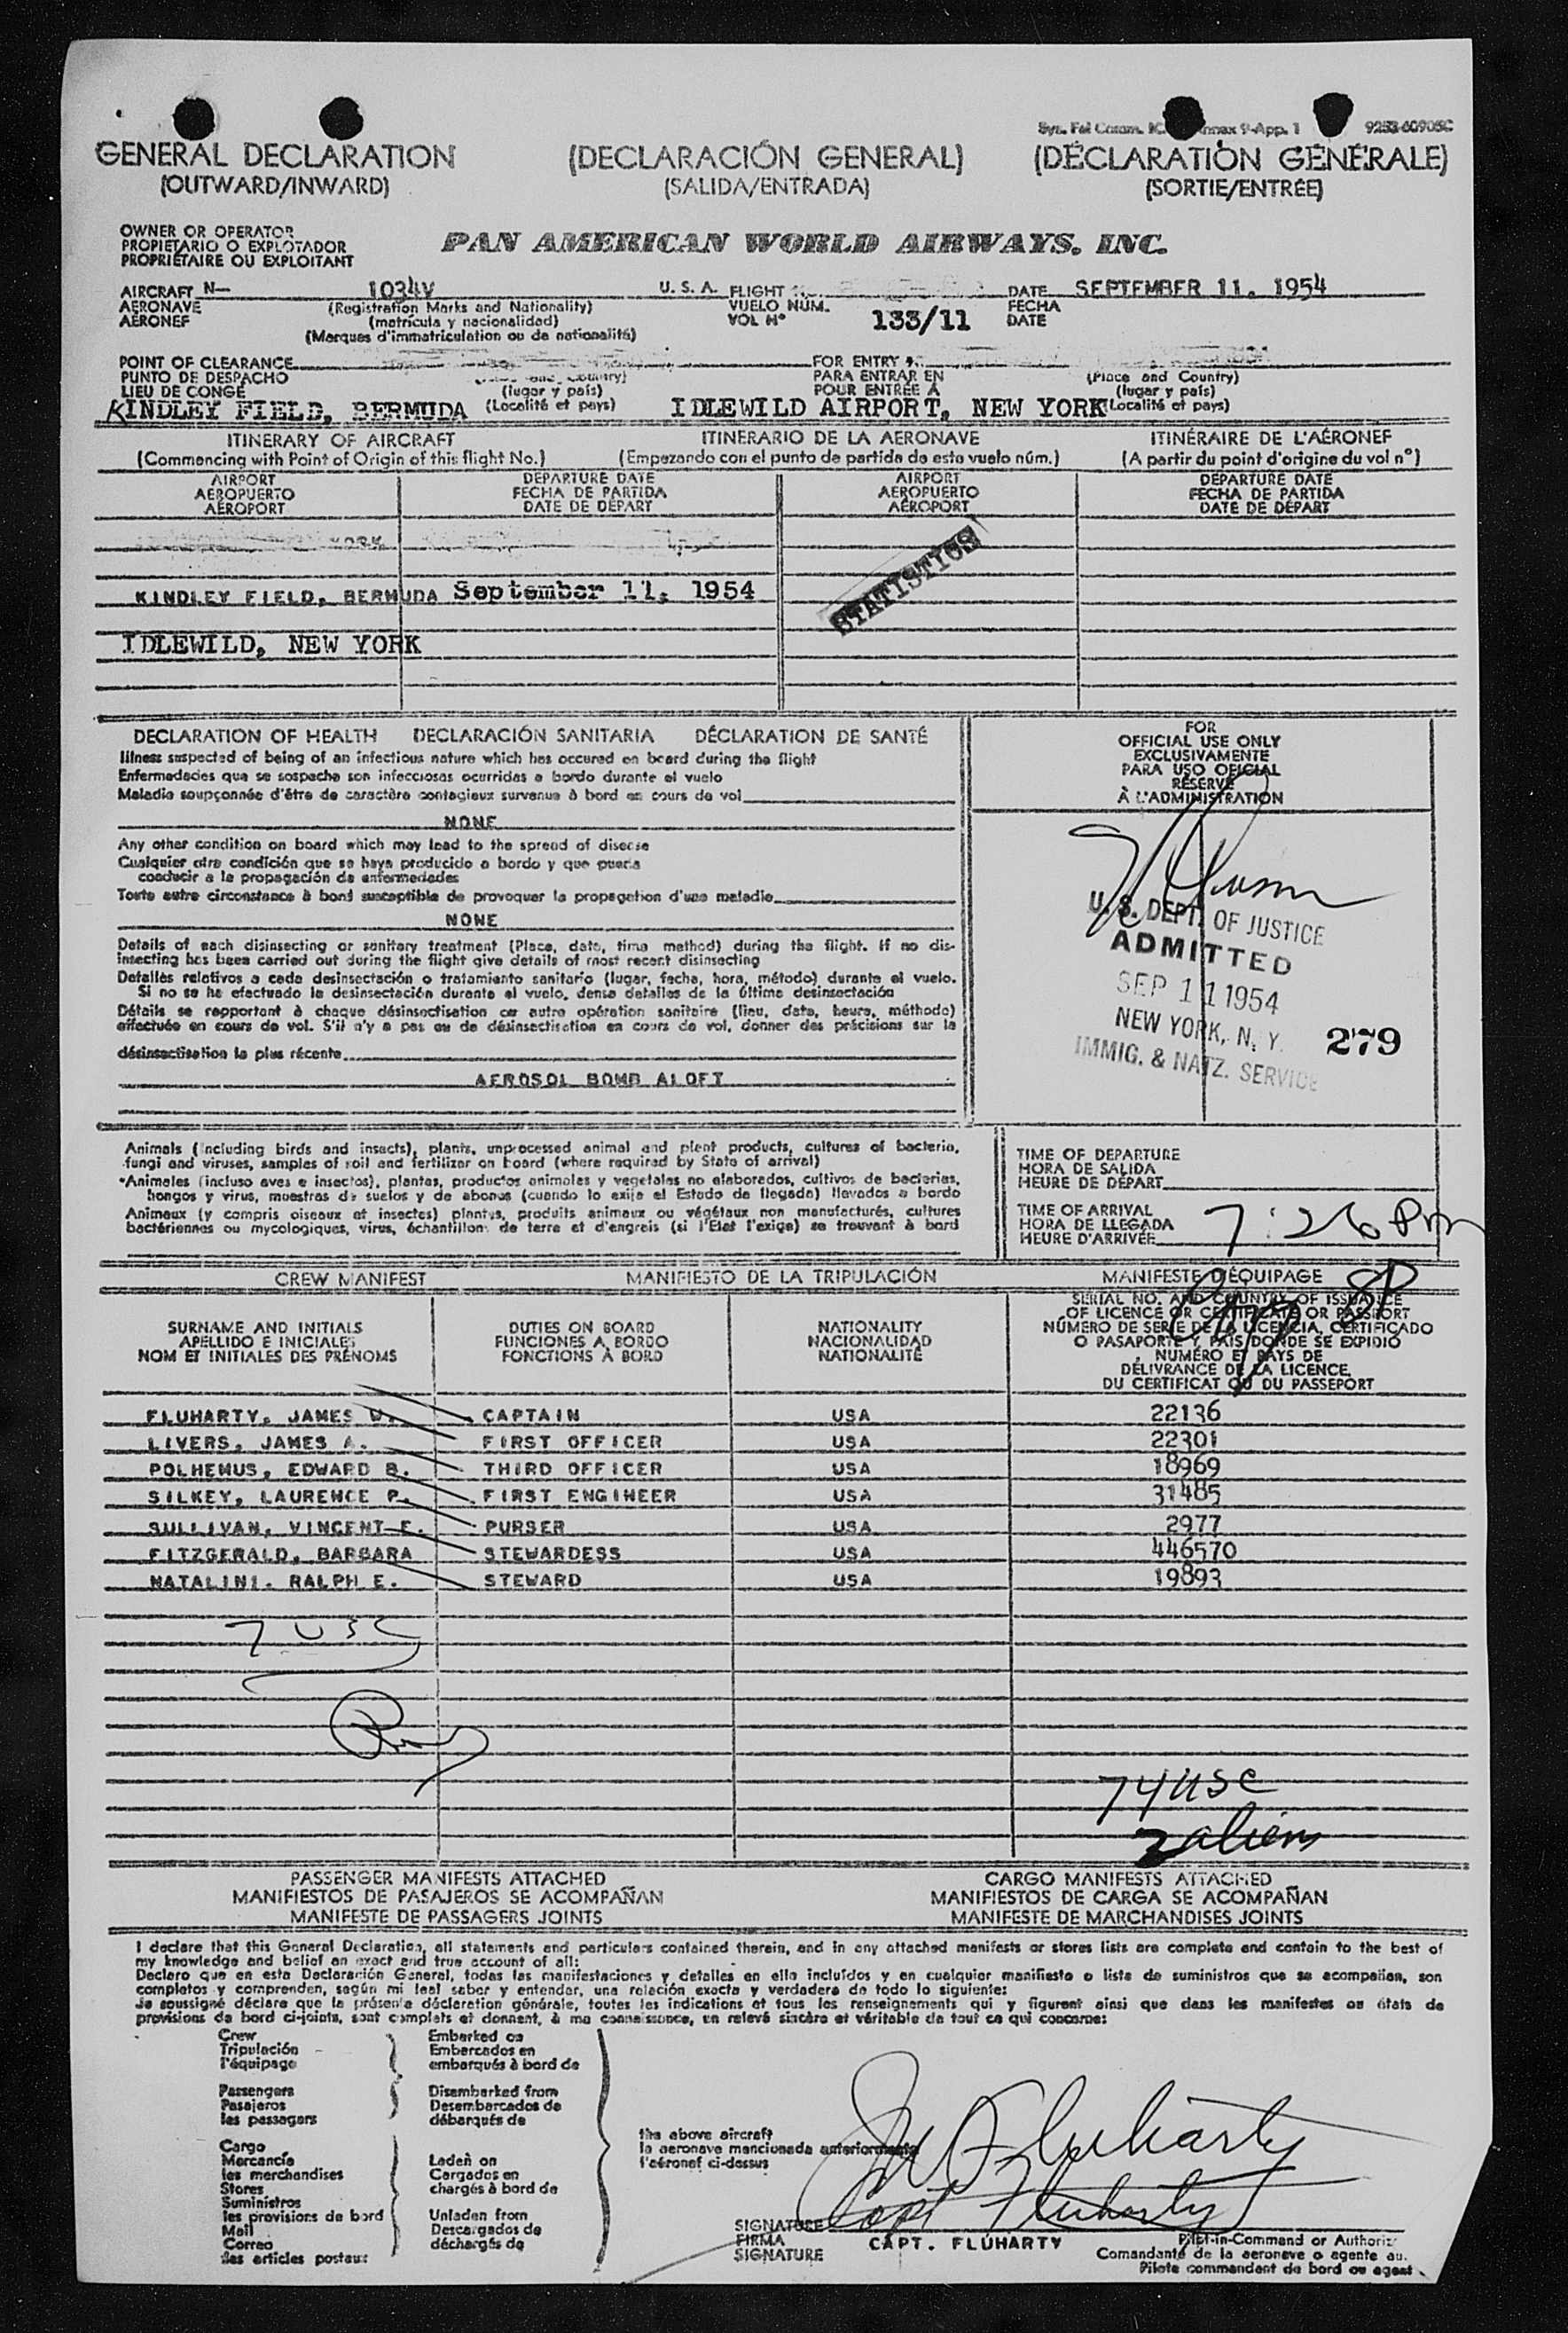 9253-60905C
GENERAL DECLARATION (DECLARACIÓN GENERAL) (DÉCLARATION GÉNÉRALE)
(OUTWARD/INWARD) (SALIDA/ENTRADA) (SORTIE/ENTRÉE)
OWNER OR OPERATOR
PROPIETARIO O EXPLOTADOR
PROPRIÉTAIRE OU EXPLOITANT
PAN AMERICAN WORLD AIRWAYS, INC.
AIRCRAFT N— 1034V U. S. A. FLIGHT DATE SEPTEMBER 11, 1954
AERONAVE (Registration Marks and Nationality) VUELO NÚM. 133/11 FECHA
AÉRONEF (matrícula y nacionalidad) VOL N° DATE
(Marques d'immatriculation ou de nationalité)
POINT OF CLEARANCE FOR ENTRY
PUNTO DE DESPACHO PARA ENTRAR EN (Place and Country)
LIEU DE CONGÉ (lugar y país) POUR ENTRÉE À (lugar y país)
KINDLEY FIELD, BERMUDA (Localité et pays) IDLEWILD AIRPORT, NEW YORK (Localité et pays)
ITINERARY OF AIRCRAFT ITINERARIO DE LA AERONAVE ITINÉRAIRE DE L'AÉRONEF
(Commencing with Point of Origin of this flight No.) (Empezando con el punto de partida de este vuelo núm.) (A partir du point d'origine du vol n°)
AIRPORT DEPARTURE DATE AIRPORT DEPARTURE DATE
AEROPUERTO FECHA DE PARTIDA AEROPUERTO FECHA DE PARTIDA
AÉROPORT DATE DE DÉPART AÉROPORT DATE DE DÉPART
YORK
STATISTICS
KINDLEY FIELD, BERMUDA September 11, 1954
IDLEWILD, NEW YORK
DECLARATION OF HEALTH DECLARACIÓN SANITARIA DÉCLARATION DE SANTÉ
Illness suspected of being of an infectious nature which has occured on board during the flight
Enfermedades que se sospecha son infecciosas ocurridas a bordo durante el vuelo
Maladie soupçonnée d'être de caractère contagieux survenue à bord en cours de vol
NONE
Any other condition on board which may lead to the spread of disease
Cualquier otra condición que se haya producido a bordo y que pueda
conducir a la propagación de enfermedades
Toute autre circonstance à bord susceptible de provoquer la propagation d'une maladie
NONE
Details of each disinsecting or sanitary treatment (Place, date, time method) during the flight. If no dis-
insecting has been carried out during the flight give details of most recent disinsecting
Detalles relativos a cada desinsectación o tratamiento sanitario (lugar, fecha, hora, método) durante el vuelo.
Si no se ha efectuado la desinsectación durante el vuelo, dense detalles de la última desinsectación
Détails se rapportant à chaque désinsectisation ou autre opération sanitaire (lieu, date, heure, méthode)
effectuée en cours de vol. S'il n'y a pas eu de désinsectisation en cours de vol, donner des précisions sur la
désinsectisation la plus récente
AEROSOL BOMB ALOFT
FOR
OFFICIAL USE ONLY
EXCLUSIVAMENTE
PARA USO OFICIAL
RÉSERVÉ
À L'ADMINISTRATION
U. S. DEPT. OF JUSTICE
ADMITTED
SEP 11 1954
NEW YORK, N. Y. 279
IMMIG. & NATZ. SERVICE
Animals (including birds and insects), plants, unprocessed animal and plant products, cultures of bacteria,
fungi and viruses, samples of soil and fertilizer on board (where required by State of arrival)
Animales (incluso aves e insectos), plantas, productos animales y vegetales no elaborados, cultivos de bacterias,
hongos y virus, muestras de suelos y de abonos (cuando lo exija el Estado de llegada) llevados a bordo
Animaux (y compris oiseaux et insectes) plantes, produits animaux ou végétaux non manufacturés, cultures
bactériennes ou mycologiques, virus, échantillons de terre et d'engrais (si l'Etat l'exige) se trouvant à bord
TIME OF DEPARTURE
HORA DE SALIDA
HEURE DE DÉPART
TIME OF ARRIVAL
HORA DE LLEGADA 7:26 Pm
HEURE D'ARRIVÉE
CREW MANIFEST MANIFIESTO DE LA TRIPULACIÓN MANIFESTE D'ÉQUIPAGE
SURNAME AND INITIALS
APELLIDO E INICIALES
NOM ET INITIALES DES PRÉNOMS
DUTIES ON BOARD
FUNCIONES A BORDO
FONCTIONS À BORD
NATIONALITY
NACIONALIDAD
NATIONALITÉ
SERIAL NO. AND COUNTRY OF ISSUANCE
OF LICENCE OR CERTIFICATE OR PASSPORT
NÚMERO DE SERIE DE LA LICENCIA, CERTIFICADO
O PASAPORTE Y PAÍS DONDE SE EXPIDIÓ
NUMÉRO ET PAYS DE
DÉLIVRANCE DE LA LICENCE,
DU CERTIFICAT OU DU PASSEPORT
FLUHARTY, JAMES W. CAPTAIN USA 22136
LIVERS, JAMES A. FIRST OFFICER USA 22301
POLHEMUS, EDWARD B. THIRD OFFICER USA 18969
SILKEY, LAURENCE P. FIRST ENGINEER USA 31485
SULLIVAN, VINCENT E. PURSER USA 2977
FITZGERALD, BARBARA STEWARDESS USA 446570
NATALINI, RALPH E. STEWARD USA 19893
7 USC
74 USC
2 aliens
PASSENGER MANIFESTS ATTACHED CARGO MANIFESTS ATTACHED
MANIFIESTOS DE PASAJEROS SE ACOMPAÑAN MANIFIESTOS DE CARGA SE ACOMPAÑAN
MANIFESTE DE PASSAGERS JOINTS MANIFESTE DE MARCHANDISES JOINTS
I declare that this General Declaration, all statements and particulars contained therein, and in any attached manifests or stores lists are complete and contain to the best of
my knowledge and belief an exact and true account of all:
Declaro que en esta Declaración General, todas las manifestaciones y detalles en ella incluídos y en cualquier manifiesto o lista de suministros que se acompañan, son
completos y comprenden, según mi leal saber y entender, una relación exacta y verdadera de todo lo siguiente:
Je soussigné déclare que la présente déclaration générale, toutes les indications et tous les renseignements qui y figurent ainsi que dans les manifestes ou états de
provisions de bord ci-joints, sont complets et donnent, à ma connaissance, un relevé sincère et véritable de tout ce qui concerne:
Crew Embarked on
Tripulación Embarcados en
l'équipage embarqués à bord de
Passengers Disembarked from
Pasajeros Desembarcados de
les passagers débarqués de
Cargo
Mercancía Laden on
les merchandises Cargados en
Stores chargés à bord de
Suministros
les provisions de bord Unladen from
Mail Descargados de
Correo déchargés de
les articles postaux
the above aircraft
la aeronave mencionada anteriormente
l'aéronef ci-dessus
JW Fluharty
Capt Fluharty
SIGNATURE
FIRMA CAPT. FLUHARTY Pilot-in-Command or Authoriz
SIGNATURE Comandante de la aeronave o agente au.
Pilote commandant de bord ou agent